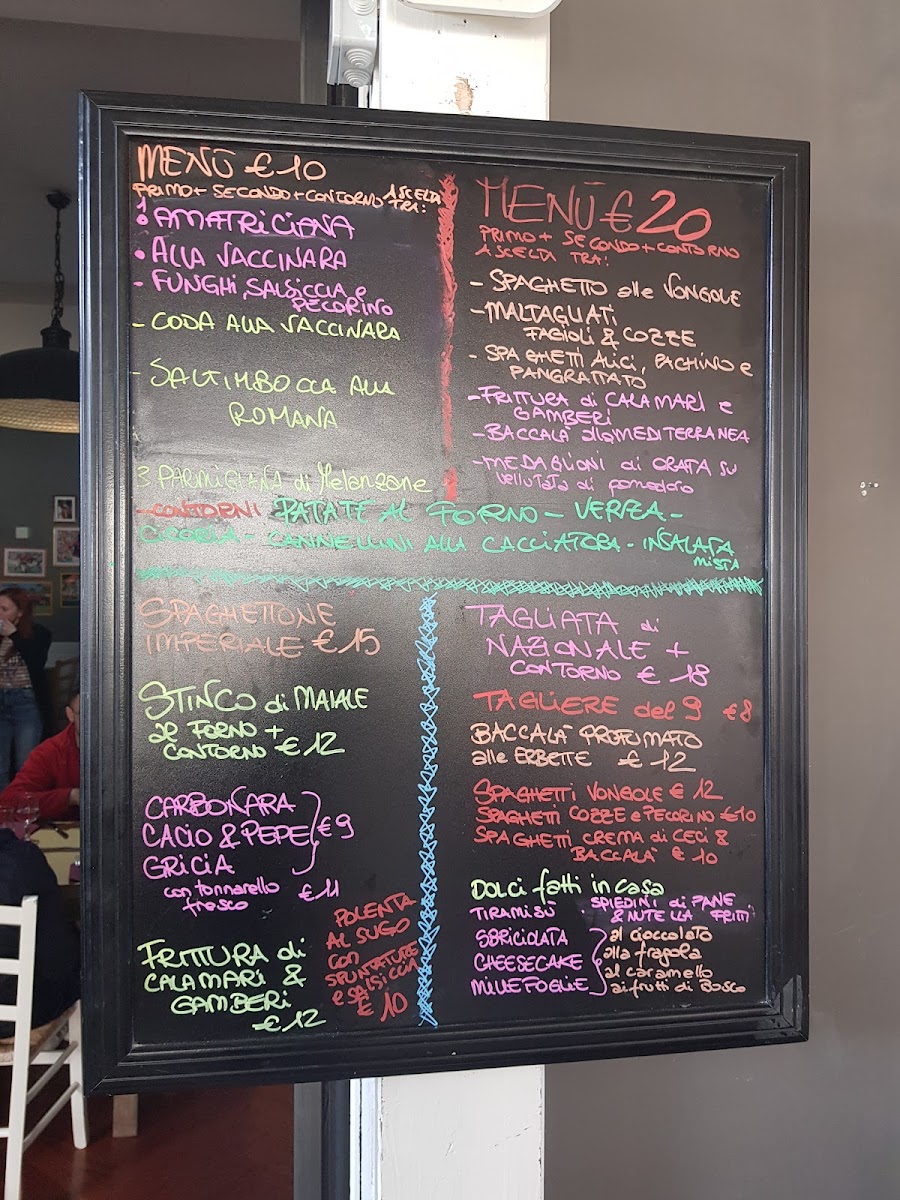 MENÙ €10
PRIMO + SECONDO + CONTORNO A SCELTA
TRA:
• AMATRICIANA
• ALLA VACCINARA
- FUNGHI, SALSICCIA e
PECORINO
- CODA ALLA VACCINARA
- SALTIMBOCCA ALLA
ROMANA
PARMIGIANA di Melanzane
MENÙ € 20
PRIMO + SECONDO + CONTORNO
A SCELTA TRA:
- SPAGHETTO alle VONGOLE
- MALTAGLIATI
FAGIOLI & COZZE
- SPAGHETTI ALICI, PACHINO e
PANGRATTATO
- FRITTURA di CALAMARI e
GAMBERI
- BACCALÀ alla MEDITERRANEA
- MEDAGLIONI di ORATA SU
vellutata di pomodoro
- CONTORNI PATATE AL FORNO - VERZA -
CICORIA - CANNELLINI ALLA CACCIATORA - INSALATA
MISTA
SPAGHETTONE
IMPERIALE € 15
STINCO di MAIALE
al FORNO +
CONTORNO € 12
CARBONARA
CACIO & PEPE €9
GRICIA
con tonnarello €11
fresco
FRITTURA di
CALAMARI &
GAMBERI
- € 12
POLENTA
AL SUGO
con
SPUNTATURE
e SALSICCIA
€ 10
TAGLIATA di
NAZIONALE +
CONTORNO € 18
TAGLIERE del 9 €8
BACCALÀ PROFUMATO
alle ERBETTE € 12
SPAGHETTI VONGOLE € 12
SPAGHETTI COZZE e PECORINO €10
SPAGHETTI CREMA DI CECI &
BACCALÀ € 10
DOLCI fatti in casa
TIRAMISÙ • SPIEDINI di PANE
& NUTELLA FRITTI
SBRICIOLATA al cioccolato
CHEESECAKE alla fragola
MILLEFOGLIE al caramello
ai frutti di Bosco